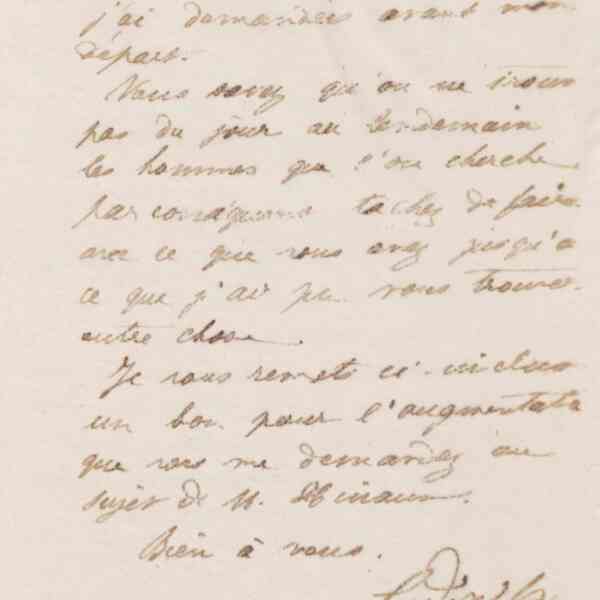 j'ai demandés avant mon
départ.
Vous savez qu'on ne trouve
pas du jour au lendemain
les hommes que l'on cherche
par conséquent tachez de faire
avec ce que vous avez jusqu'à
ce que j'ai pu vous trouver
autre chose.
Je vous remets ci-inclus
un bon pour l'augmentat°
que vous me demandez au
sujet de M.
Bien à vous.